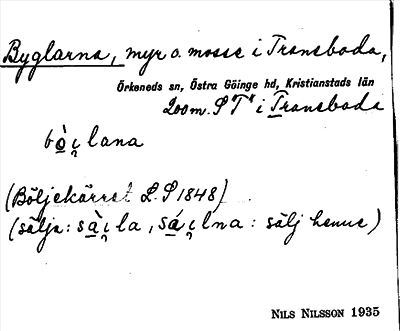 Byglarna, myr o. mosse i Transboda,
Örkeneds sn, Östra Göinge hd, Kristianstads län
200 m. S "T" i Transboda
bò̠i̯lana
(Böljekärret L.S 1848)
(sälja: sà̠i̯la, sá̠i̯lna: sälj henne)
NILS NILSSON 1935